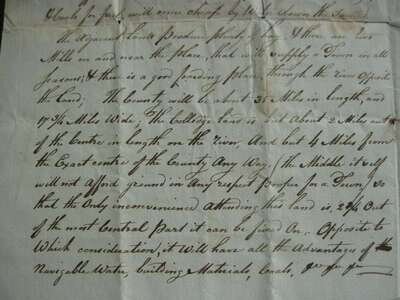 Coals for fuel, will come cheap by Water down the
the adjacent Lands produce plenty of hay, & there are two
Mills in and near the place, that will supply a Town in all
Seasons; & there is a good fording place, through the River Oposit
the Land; The County will be about 31 Miles in length, and
17 3/4 Miles Wide, The Colledge Land is but About 2 Miles out
of the Centre in length on the river And but 4 Miles from
the Exact centre of the County Any Way / the Middle itself
will not afford ground in Any respect for a Town, so
that the Only inconvenience Attending this land is, 2 3/4 Out
of the most Central part it can be fixed On. Opposite to
Which consideration, it Will have all the Advantages of
Navigable Water, building Materials, Coals, &c &c &c